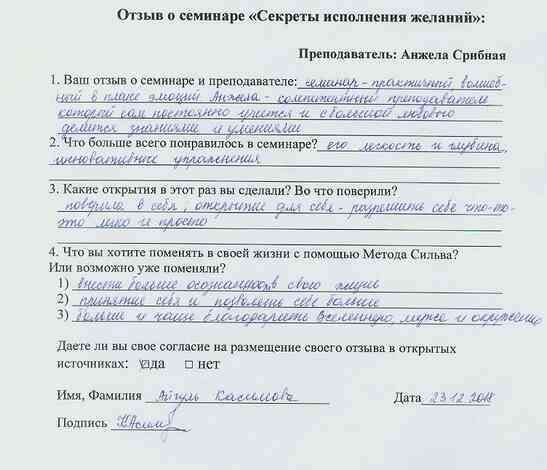 Отзыв о семинаре «Секреты исполнения желаний»:
Преподаватель: Анжела Срибная
1. Ваш отзыв о семинаре и преподавателе: семинар - практичный, волшеб-
ный в плане эмоций Анжела - компетентный преподаватель
который сам постоянно учится и с большой любовью
делится знаниями и умениями
2. Что больше всего понравилось в семинаре? его легкость и глубина,
инновативные упражнения
3. Какие открытия в этот раз вы сделали? Во что поверили?
поверила в себя, открытие для себя - разрешить себе что-то-
это легко и просто
4. Что вы хотите поменять в своей жизни с помощью Метода Сильва?
Или возможно уже поменяли?
1) внести больше осознанности в свою жизнь
2) принятие себя и позволять себе больше
3) больше и чаще благодарить Вселенную, мужа и окружение
Даете ли вы свое согласие на размещение своего отзыва в открытых
источниках: ☑да □ нет
Имя, Фамилия Айгуль Касимова Дата 23.12.2018
Подпись